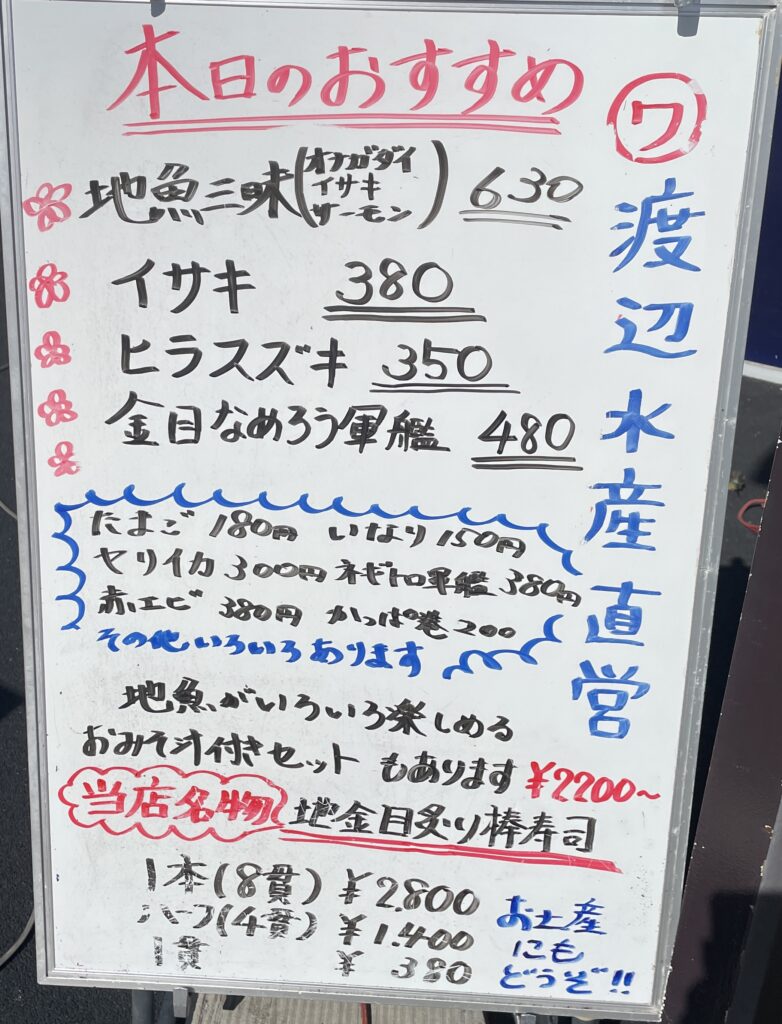 本日のおすすめ
ワ 渡辺水産直営
地魚三昧(オナガダイ イサキ サーモン) 630
イサキ 380
ヒラスズキ 350
金目なめろう軍艦 480
たまご 180円 いなり 150円
ヤリイカ 300円 ネギトロ軍艦 380円
赤エビ 380円 かっぱ巻 200
その他いろいろあります
地魚がいろいろ楽しめる
おみそ汁付きセット もあります ¥2200~
当店名物 地金目炙り棒寿司
1本(8貫) ¥2.800
ハーフ(4貫) ¥1.400
1貫 ¥380
お土産
にも
どうぞ!!